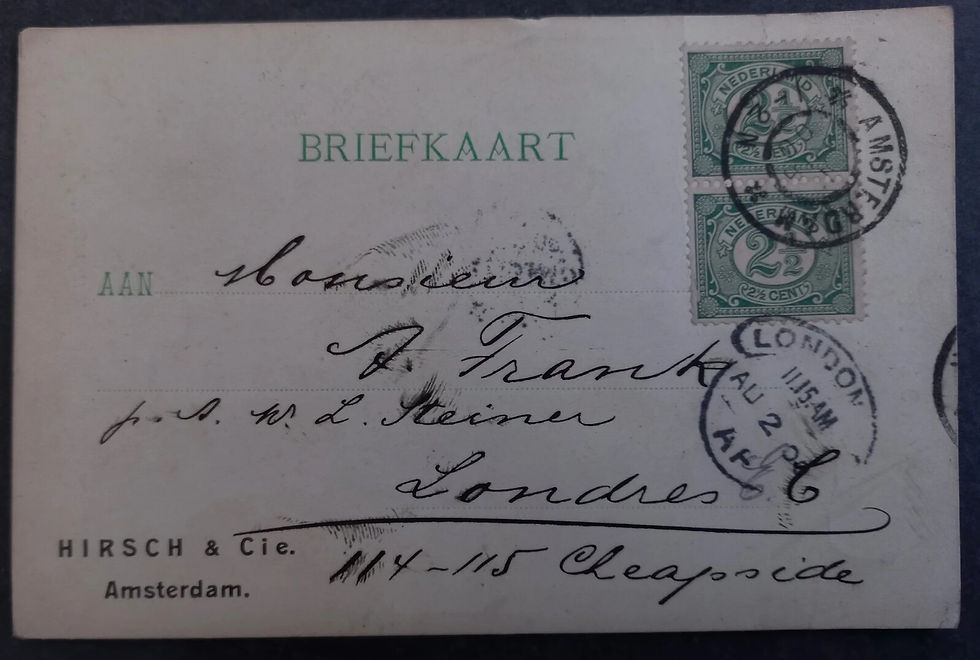 BRIEFKAART
NEDERLAND
2½
2½ CENT
AMSTERDAM
NEDERLAND
2½
2½ CENT
AAN Monsieur
A. Frank
p. A. W. L. Steiner
Londres E C
114-115 Cheapside
LONDON
11.15 AM
AU 2
HIRSCH & Cie.
Amsterdam.